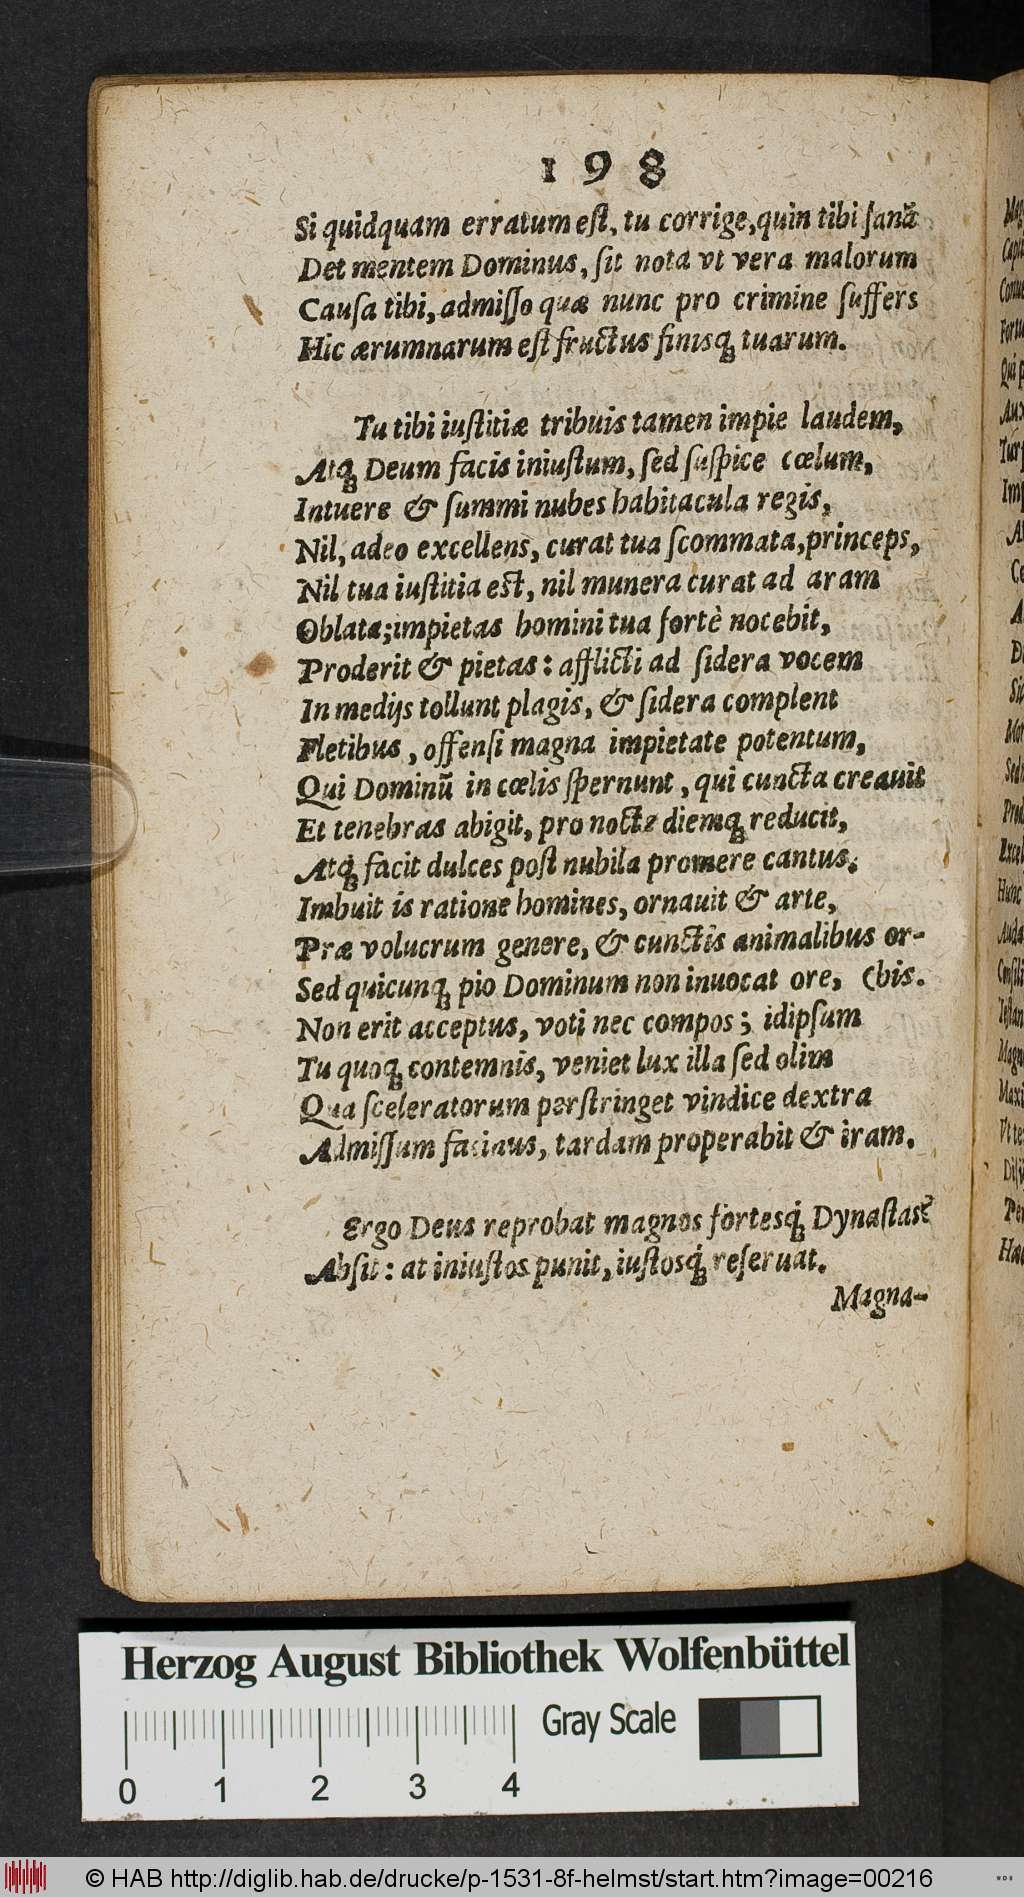 198
Si quidquam erratum eſt, tu corrige, quin tibi ſanā
Det mentem Dominus, ſit nota vt vera malorum
Cauſa tibi, admiſſo quæ nunc pro crimine ſuffers
Hic ærumnarum eſt fructus finisq́; tuarum.
Tu tibi iuſtitiæ tribuis tamen impie laudem,
Atq́; Deum facis iniuſtum, ſed ſuſpice cœlum,
Intuere & ſummi nubes habitacula regis,
Nil, adeo excellens, curat tua ſcommata, princeps,
Nil tua iuſtitia eſt, nil munera curat ad aram
Oblata; impietas homini tua fortè nocebit,
Proderit & pietas: afflicti ad ſidera vocem
In medijs tollunt plagis, & ſidera complent
Fletibus, offenſi magna impietate potentum,
Qui Dominū in cœlis ſpernunt, qui cuncta creauit
Et tenebras abigit, pro nocte diemq́; reducit,
Atq́; facit dulces poſt nubila promere cantus.
Imbuit is ratione homines, ornauit & arte,
Præ volucrum genere, & cunctis animalibus or-
Sed quicunq́; pio Dominum non inuocat ore, (bis.
Non erit acceptus, voti nec compos; idipſum
Tu quoq́; contemnis, veniet lux illa ſed olim
Qua ſceleratorum perſtringet vindice dextra
Admiſſum facinus, tardam properabit & iram.
Ergo Deus reprobat magnos fortesq́; Dynaſtas?
Abſit: at iniuſtos punit, iuſtosq́; reſeruat.
Magna-
Herzog August Bibliothek Wolfenbüttel
Gray Scale
0 1 2 3 4
© HAB http://diglib.hab.de/drucke/p-1531-8f-helmst/start.htm?image=00216